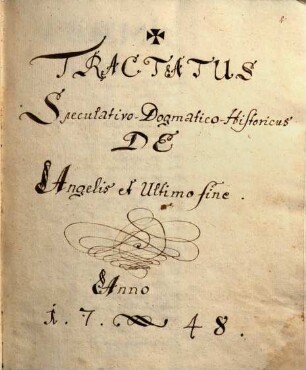 ✠
TRACTATUS
Speculativo-Dogmatico-Historicus
DE
Angelis et Ultimo fine.
Anno
1.7. 48.